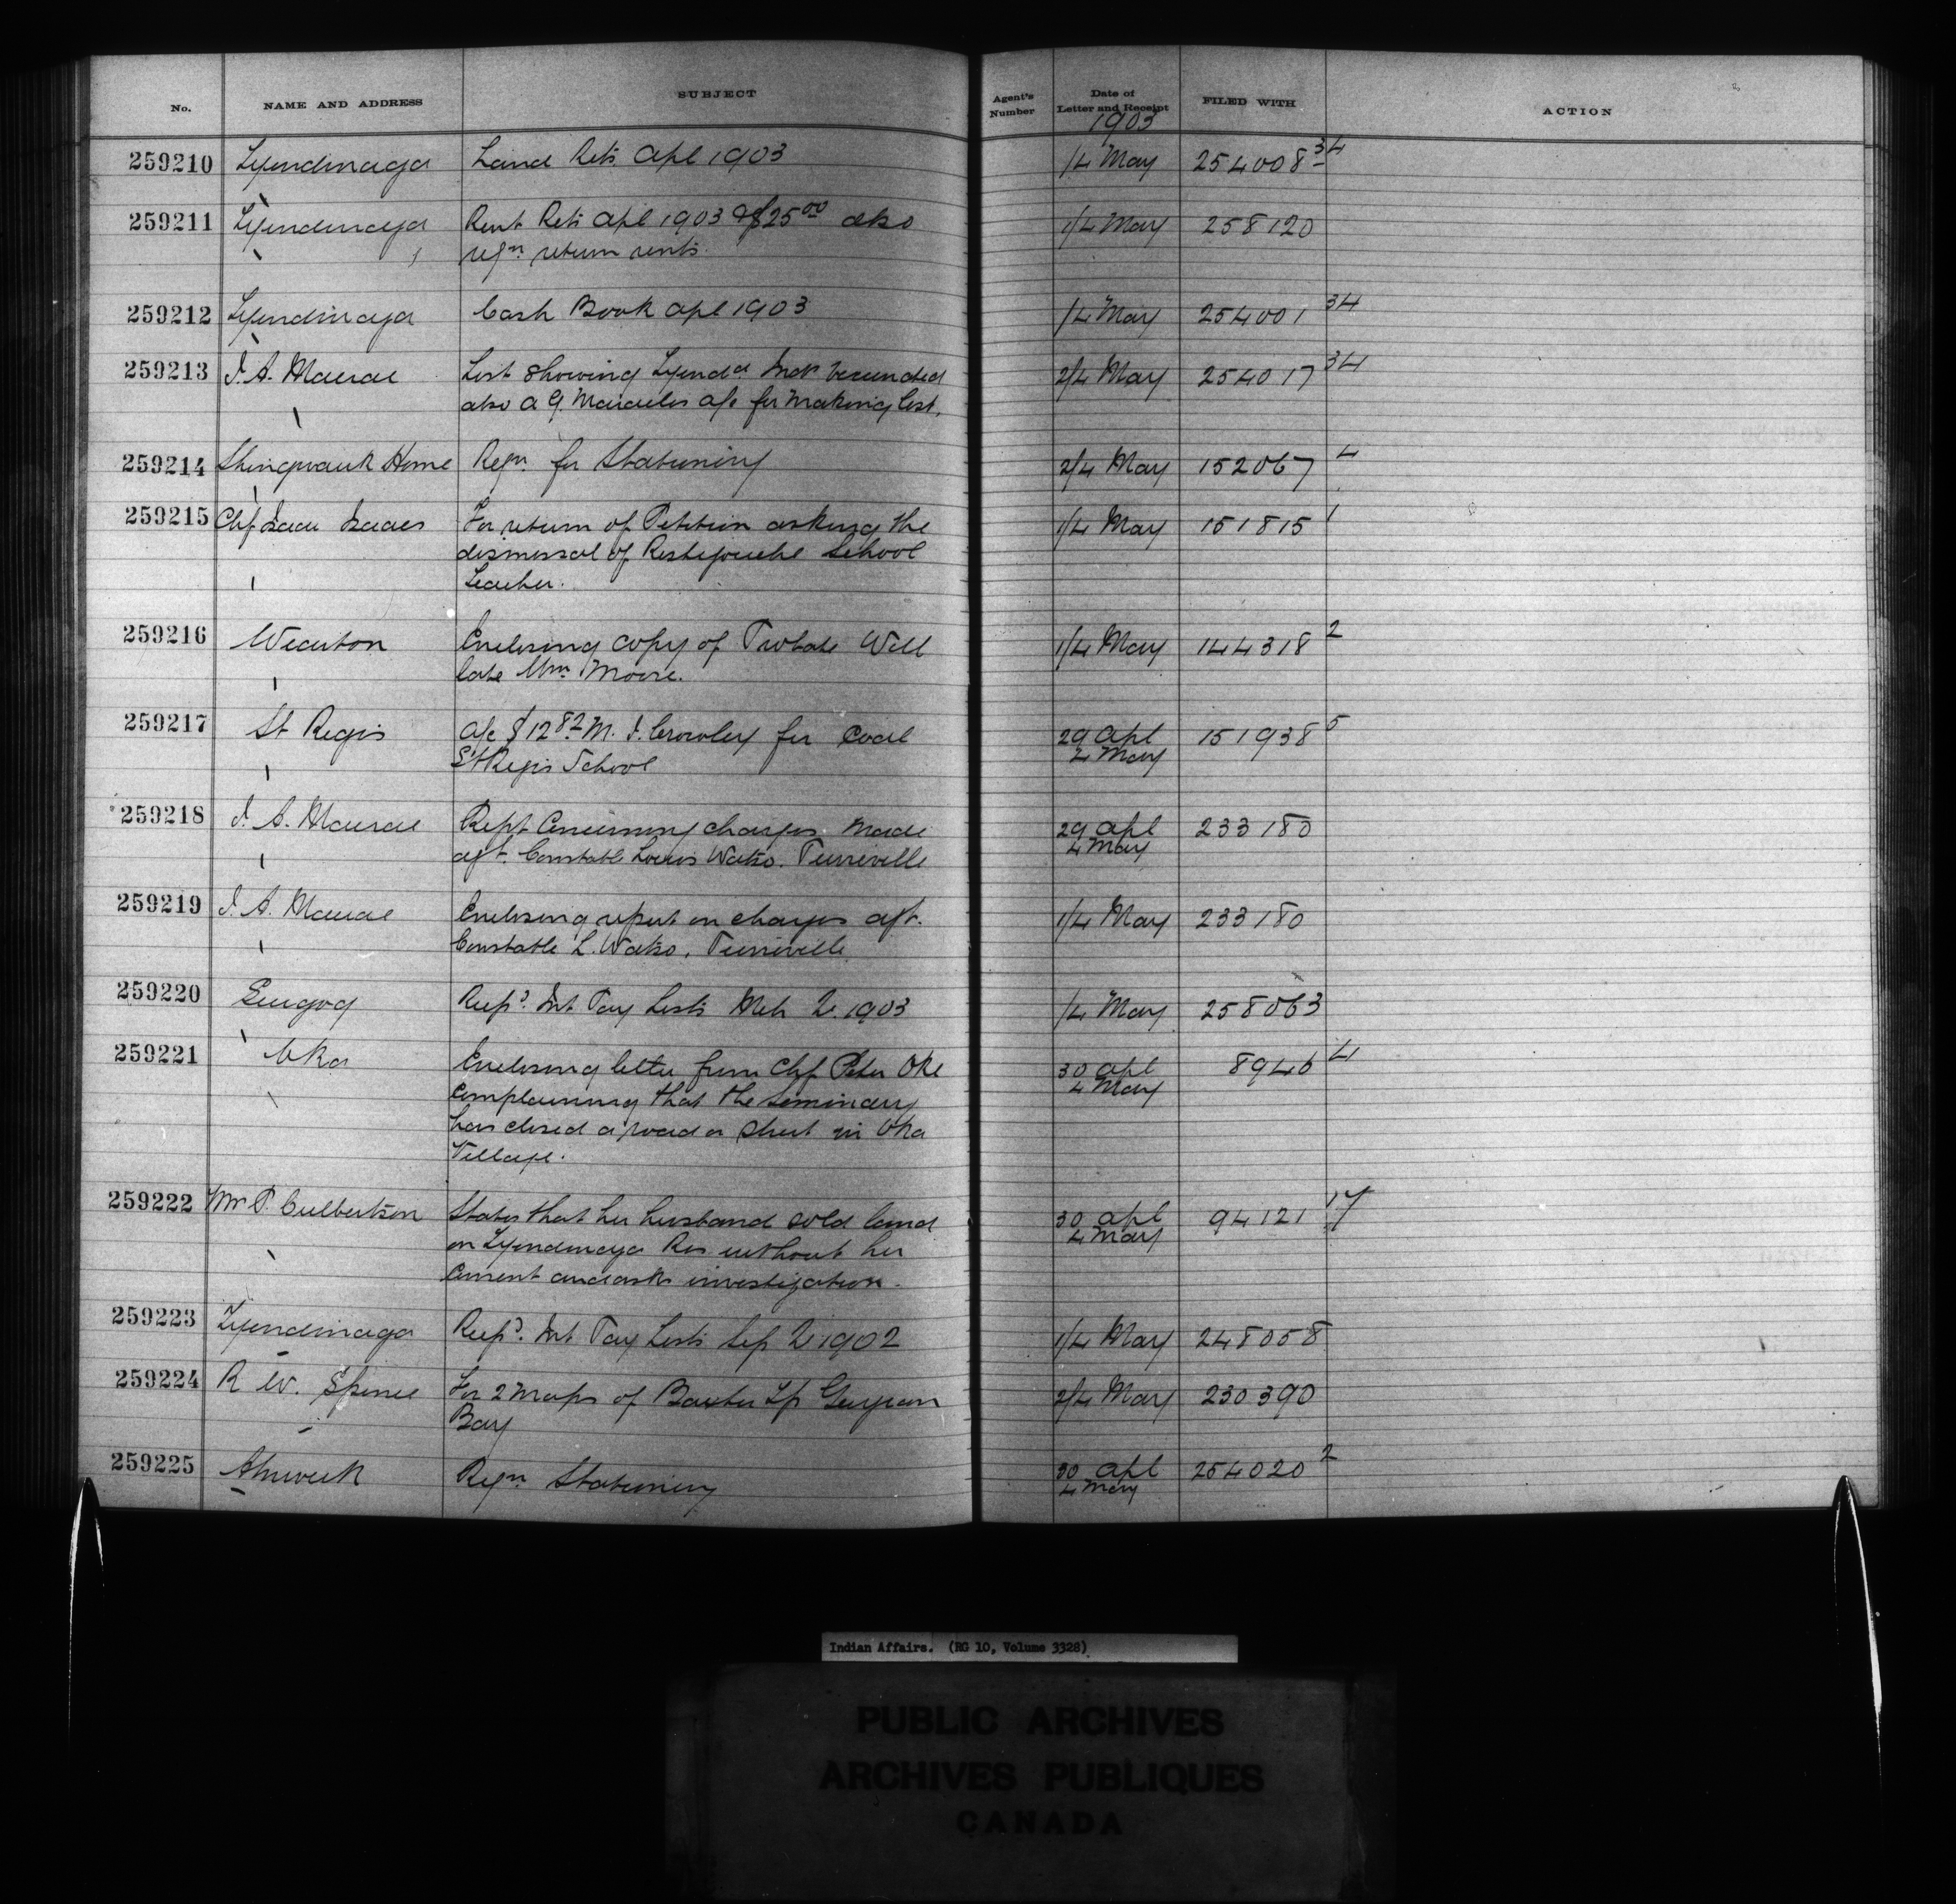 No. NAME AND ADDRESS SUBJECT Agent's Number Date of Letter and Receipt FILED WITH ACTION
1903
259210 Tyendinaga Land Rets Apl 1903 1/4 May 254008 34
259211 Tyendinaga Rent Rets Apl 1903 $25 00 also 1/4 May 258120
reqn return rents.
259212 Tyendinaga Cash Book Apl 1903 1/4 May 254001 34
259213 J. A. Macrae List showing Tyenda Inds vaccinated 2/4 May 254017 34
also a/c for making list.
259214 Shingwauk Home Reqn for Stationery 2/4 May 152067 4
259215 Chf Isaac Isaacs For return of Petition asking the 1/4 May 151815 1
dismissal of Restigouche School
Teacher.
259216 Wiarton Enclosing copy of Probate Will 1/4 May 144318 2
late Wm Moore.
259217 St Regis a/c $12 82 M. J. Crowley for Coal 29 Apl 151938 5
St Regis School 4 May
259218 J. A. Macrae Rept Concerning charges made 29 Apl 233180
agt. Constable Louis Watso. Pierreville 4 May
259219 J. A. Macrae Enclosing report on charges agt. 1/4 May 233180
Constable L. Watso. Pierreville
259220 Scugog Recpd. Int Pay Lists Mch 1903 1/4 May 258063
259221 Oka Enclosing letter from Chf Peter Oke 30 Apl 8946 4
Complaining that the Seminary 4 May
has closed a road or street in Oka
Village.
259222 P. Culbertson States that her husband sold land 30 Apl 94121 17
on Tyendinaga Res without her 4 May
Consent and asks investigation.
259223 Tyendinaga Recpd. Int Pay Lists Sep 1902 1/4 May 248058
259224 R. W. Spence For 2 Maps of Baxter Tp Georgian 2/4 May 230390
Bay
259225 Alnwick Reqn Stationery 30 Apl 254020 2
4 May
Indian Affairs. (RG 10, Volume 3328)
PUBLIC ARCHIVES
ARCHIVES PUBLIQUES
CANADA